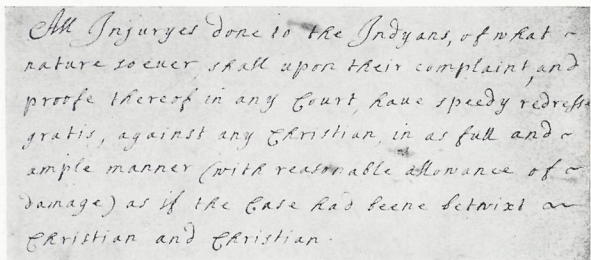 All Injuryes done to the Indyans, of what ~
nature soever, shall upon their complaint, and
proofe thereof in any Court, have speedy redresse
gratis, against any Christian, in as full and ~
ample manner (with reasonable allowance of ~
damage) as if the Case had beene betwixt ~
Christian and Christian.